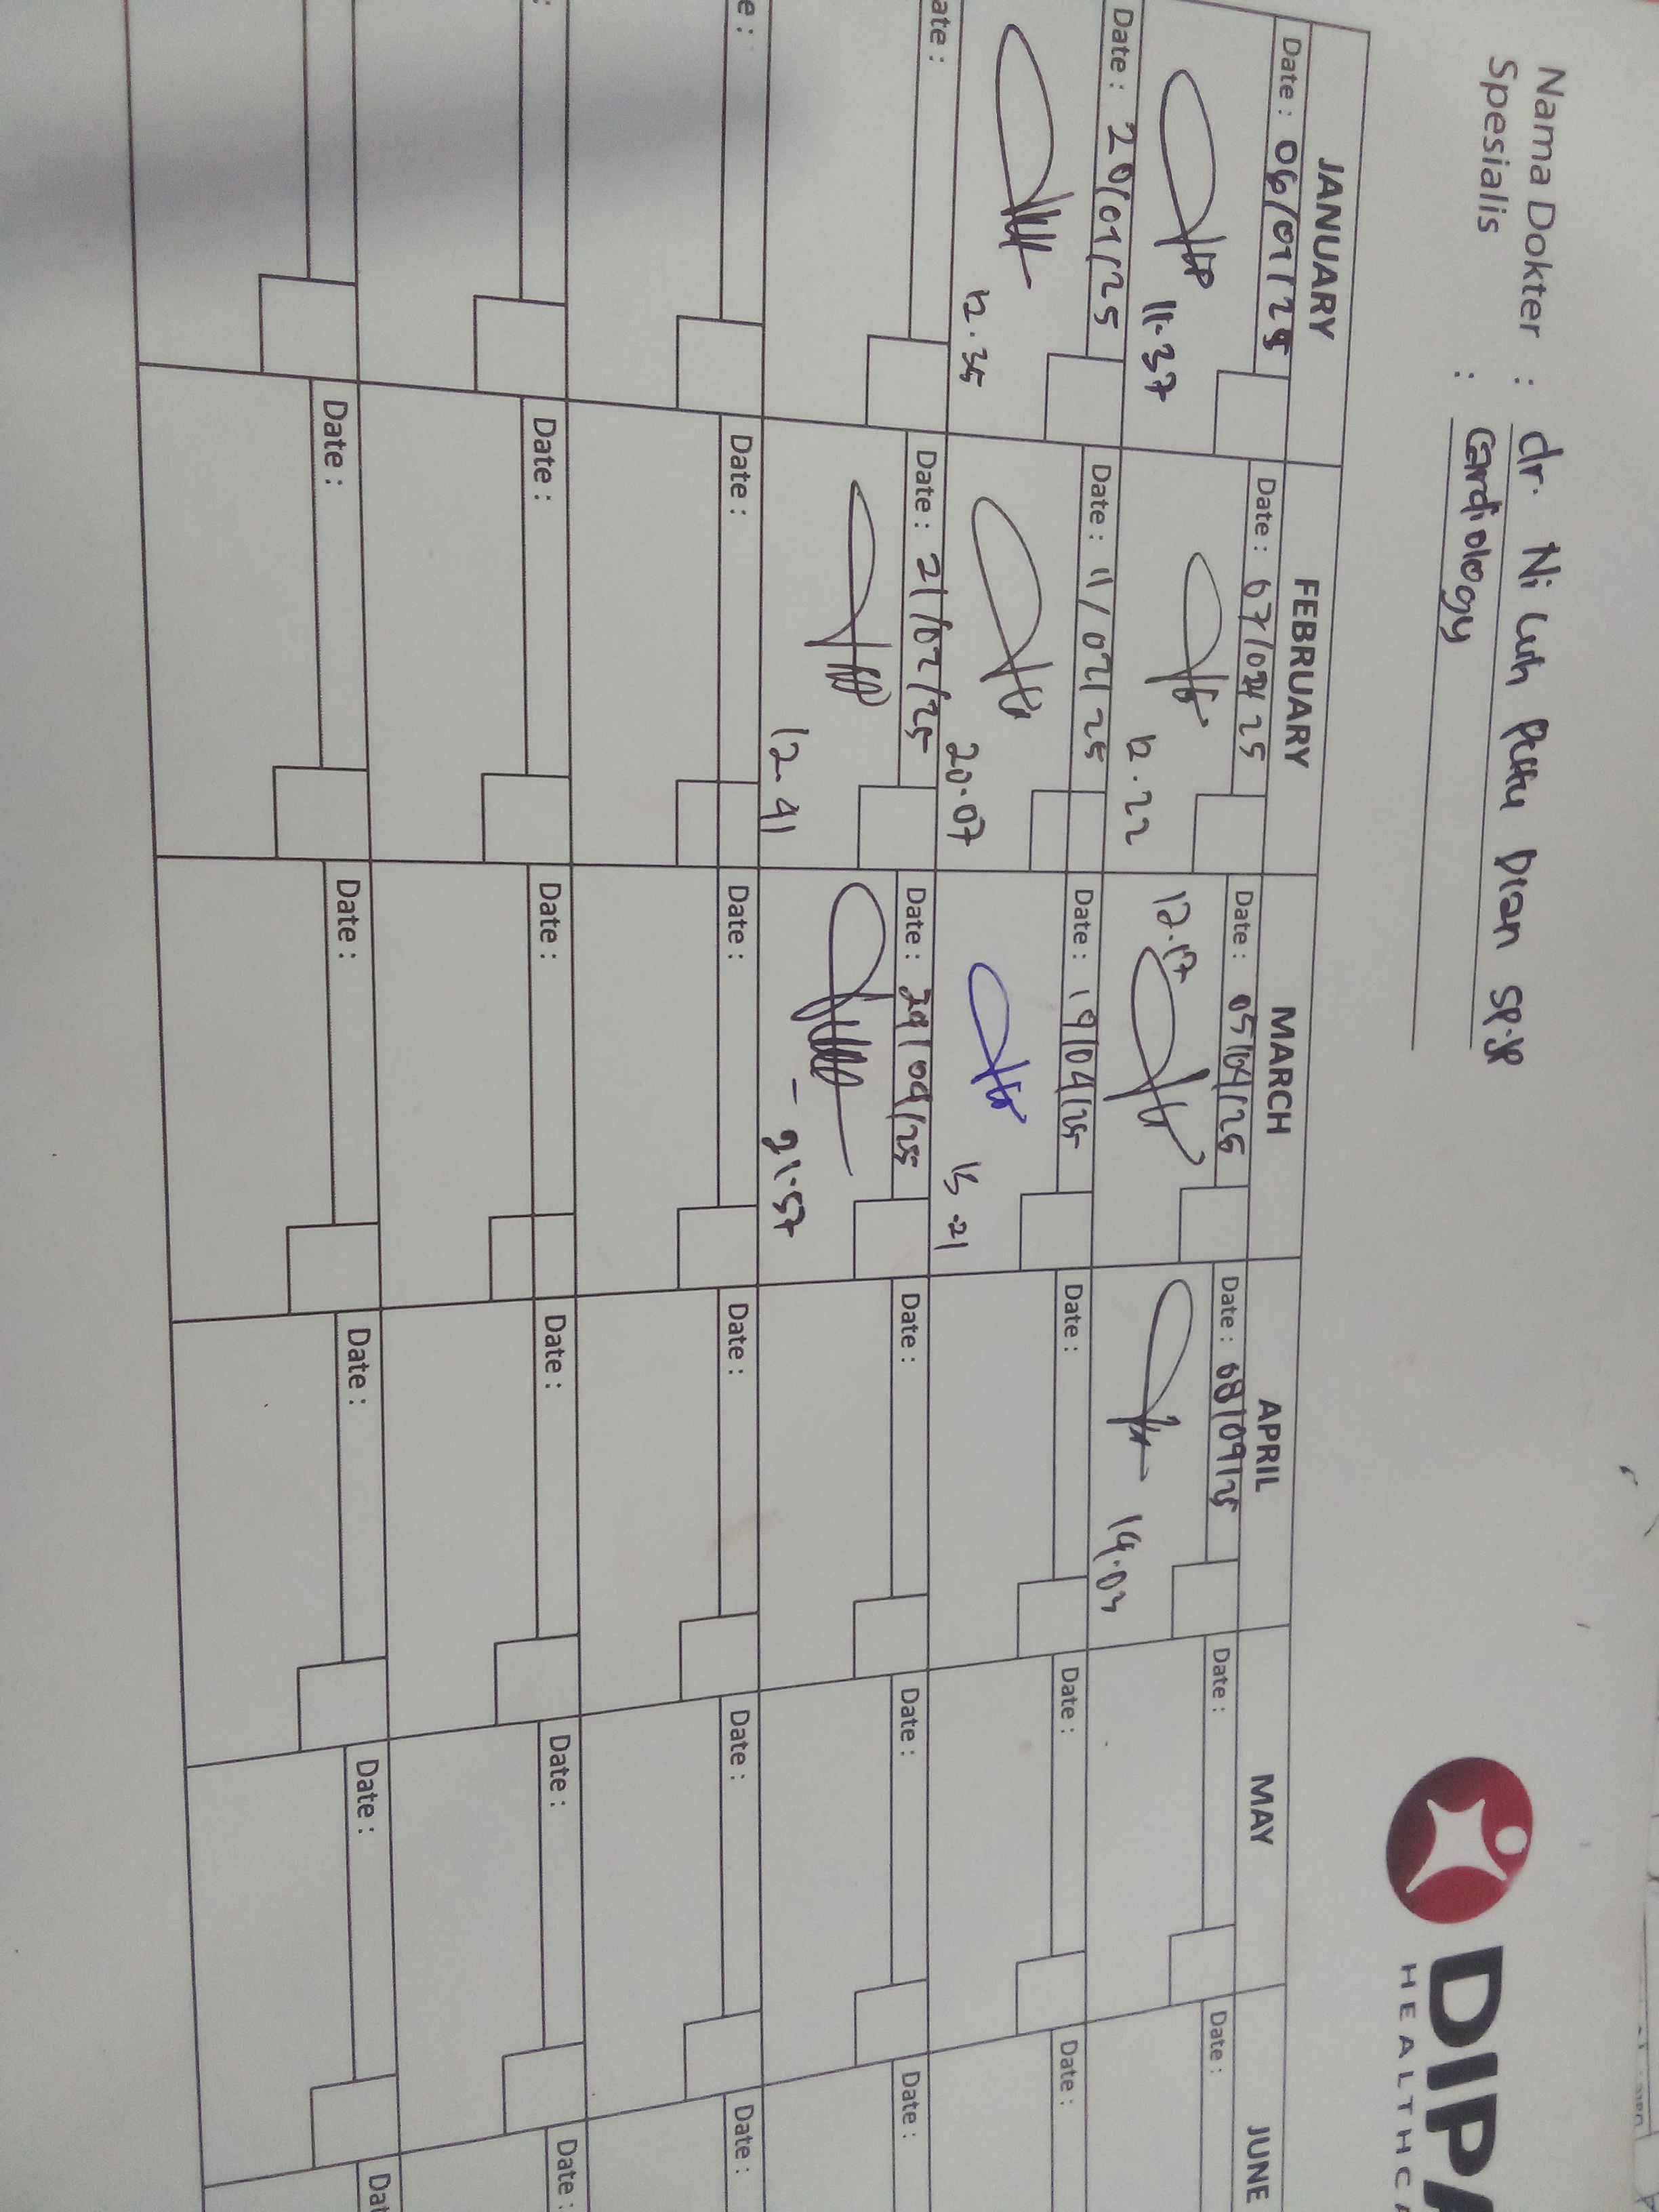 Nama Dokter : dr. Ni Luh Putu Dian Sp.JP
Spesialis : Cardiology
DIPA
HEALTHCA
JANUARY FEBRUARY MARCH APRIL MAY JUNE
Date : 06/01/25 Date : 07/02/25 Date : 05/04/25 Date : 08/09/25 Date : Date :
11.37 12.22 12.17 14.03
Date : 20/01/25 Date : 11/02/25 Date : 19/04/25 Date : Date : Date :
12.35 20.07 13.21
ate : Date : 21/02/25 Date : 29/04/25 Date : Date : Date :
12.41 21.57
e : Date : Date : Date : Date : Date :
: Date : Date : Date : Date : Date :
Date : Date : Date : Date : Dat